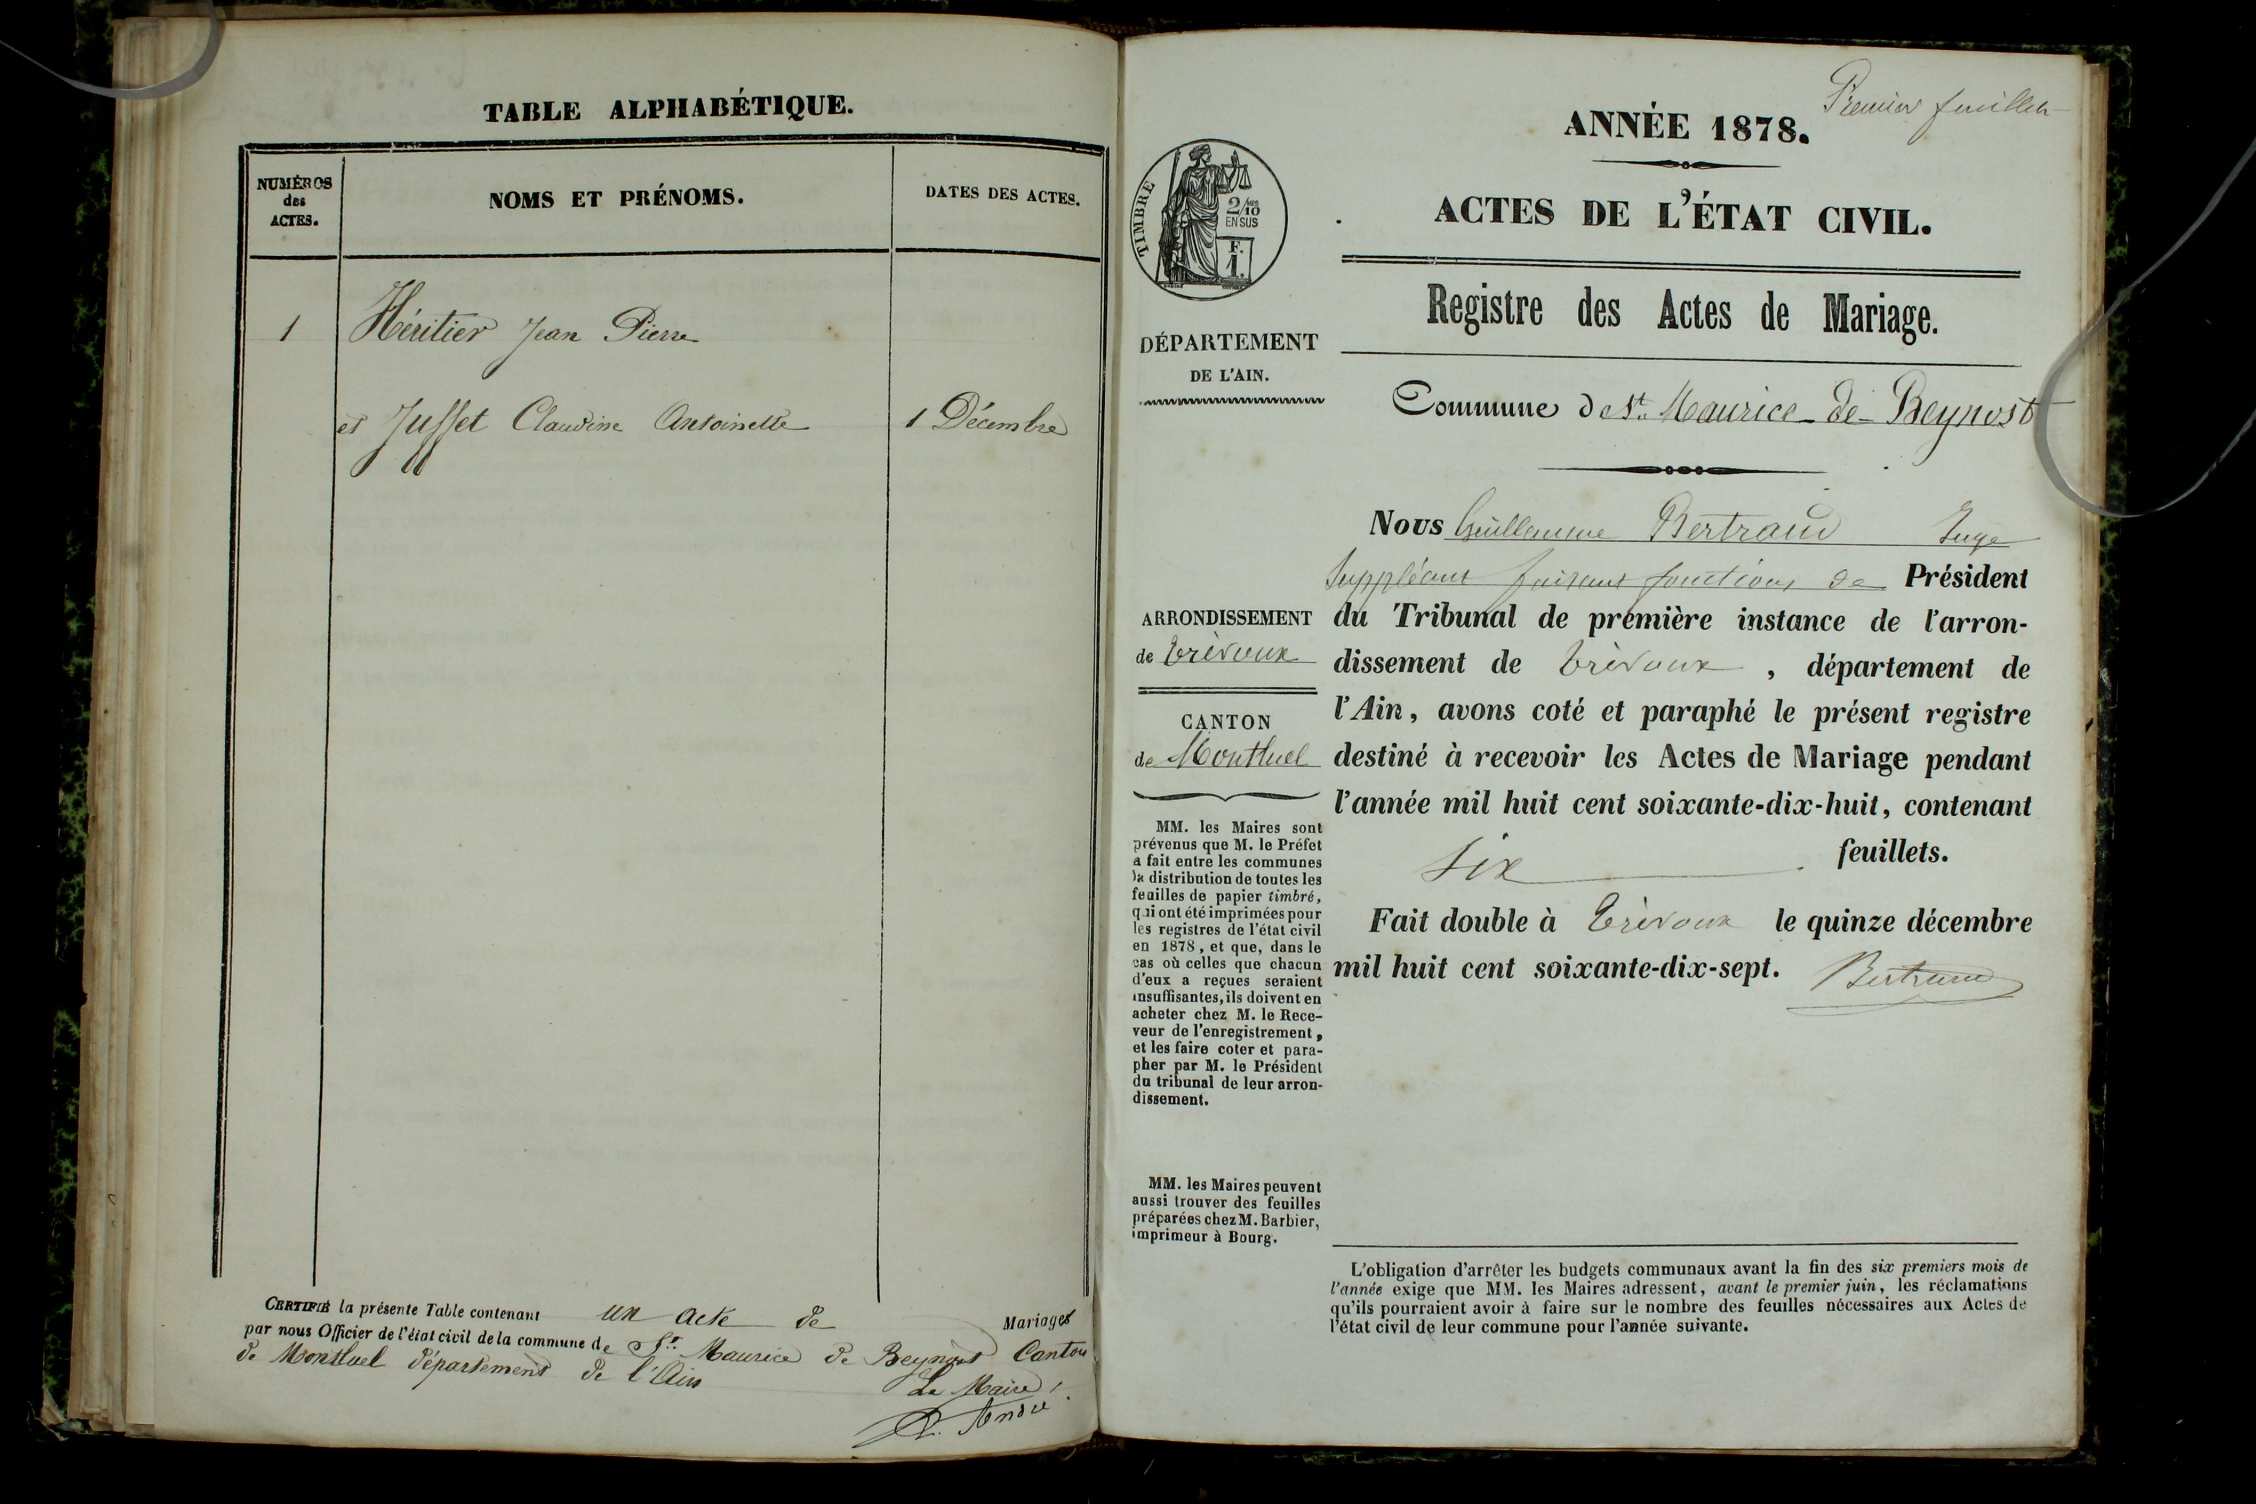 TABLE ALPHABÉTIQUE.
NUMÉROS
des
ACTES.
NOMS ET PRÉNOMS.
DATES DES ACTES.
1 Héritier Jean Pierre
et Juffet Claudine Antoinette 1 Décembre
CERTIFIÉ la présente Table contenant un acte de Mariages
par nous Officier de l'état civil de la commune de St. Maurice de Beynost Canton
de Montluel département de l'Ain
Le Maire,
André
Premier feuillet
ANNÉE 1878.
ACTES DE L'ÉTAT CIVIL.
TIMBRE
2/10
EN SUS
F.
1.
Registre des Actes de Mariage.
DÉPARTEMENT
DE L'AIN.
Commune de St. Maurice-de-Beynost
ARRONDISSEMENT
de Trévoux
CANTON
de Montluel
MM. les Maires sont
prévenus que M. le Préfet
a fait entre les communes
la distribution de toutes les
feuilles de papier timbré,
qui ont été imprimées pour
les registres de l'état civil
en 1878, et que, dans le
cas où celles que chacun
d'eux a reçues seraient
insuffisantes, ils doivent en
acheter chez M. le Rece-
veur de l'enregistrement,
et les faire coter et para-
pher par M. le Président
du tribunal de leur arron-
dissement.
MM. les Maires peuvent
aussi trouver des feuilles
préparées chez M. Barbier,
imprimeur à Bourg.
Nous Guillaume Bertrand Juge
Suppléant faisant fonctions de Président
du Tribunal de première instance de l'arron-
dissement de Trévoux, département de
l'Ain, avons coté et paraphé le présent registre
destiné à recevoir les Actes de Mariage pendant
l'année mil huit cent soixante-dix-huit, contenant
six feuillets.
Fait double à Trévoux le quinze décembre
mil huit cent soixante-dix-sept.
Bertrand
L'obligation d'arrêter les budgets communaux avant la fin des six premiers mois de
l'année exige que MM. les Maires adressent, avant le premier juin, les réclamations
qu'ils pourraient avoir à faire sur le nombre des feuilles nécessaires aux Actes de
l'état civil de leur commune pour l'année suivante.